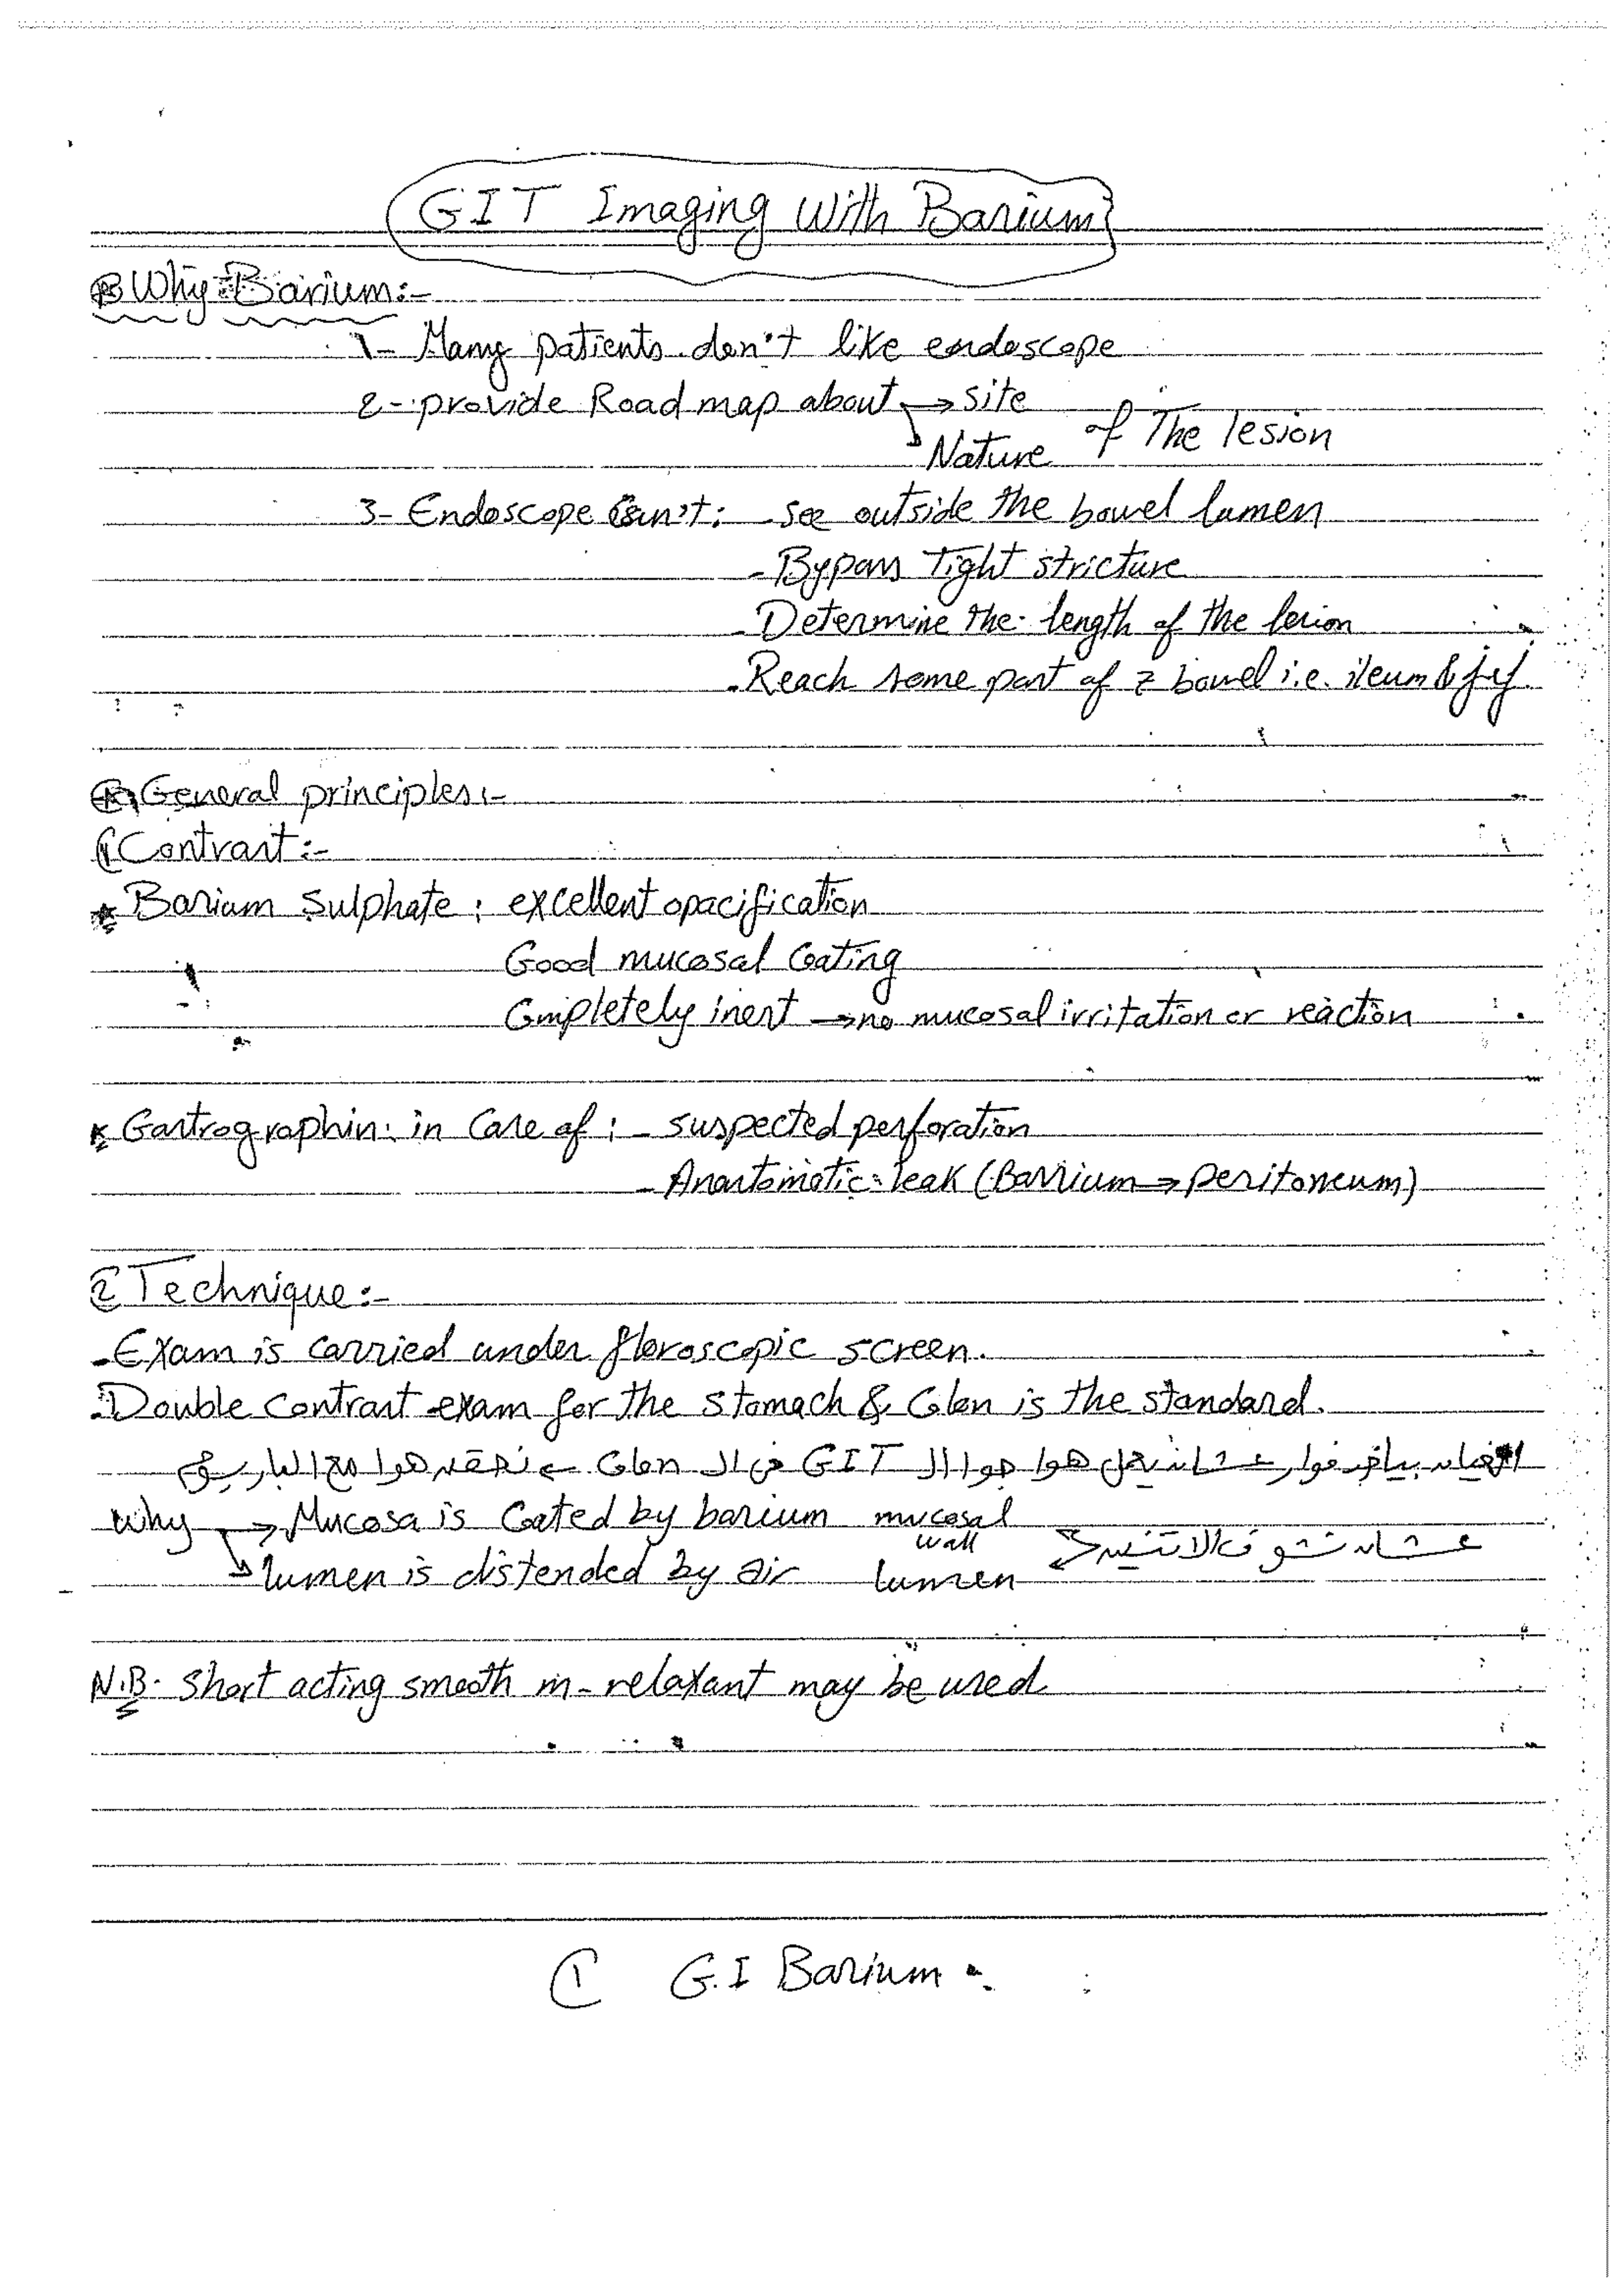 GIT Imaging With Barium
Why Barium:-
1- Many patients don't like endoscope
2- provide Road map about → site
Nature of The lesion
3- Endoscope Can't: - see outside the bowel lumen
- Bypass Tight stricture
- Determine the length of the lesion
- Reach some part of z bowel i.e. ileum & jej.
General principles:-
1 Contrast:-
* Barium Sulphate : excellent opacification
Good mucosal Coating
Completely inert → no mucosal irritation or reaction
* Gastrographin: in Case of : - suspected perforation
- Anastomotic leak (Barrium → peritoneum)
2 Technique:-
- Exam is carried under floroscopic screen.
- Double contrast exam for the stomach & Colon is the standard.
العيان بياخد فوار عشان يعمل هوا جوا ال GIT في ال Colon ← نحقنه هوا مع الباريوم
Why → Mucosa is Coated by barium mucosal
wall
عشان نشوف الاتنين
↳ lumen is distended by air lumen
N.B. short acting smooth m- relaxant may be used
1 G.I Barium